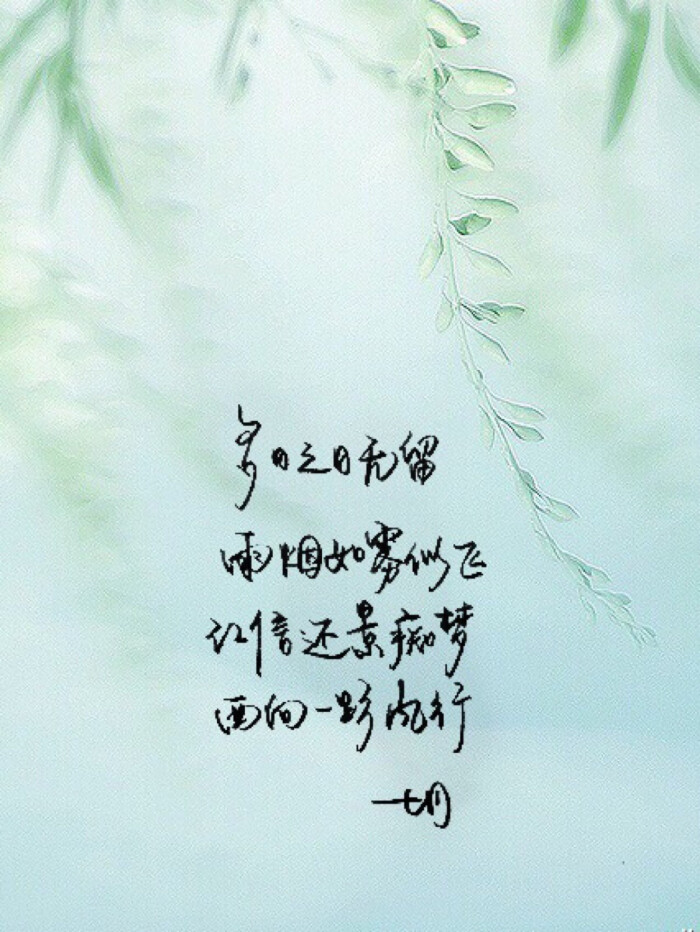 日之日无留
雨烟如雾似飞
让信还景痴梦
西向一影风行
一七月